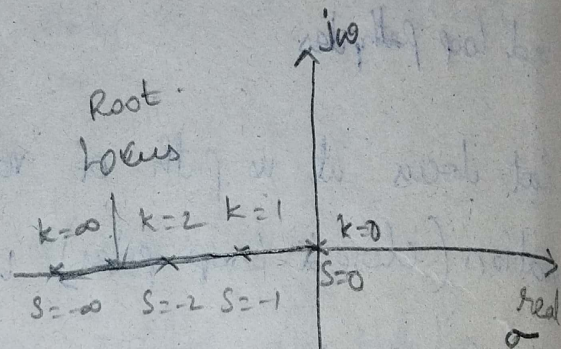 jω
Root
Locus
k=∞ k=2 k=1 k=0
S=-∞ S=-2 S=-1 S=0
real
σ